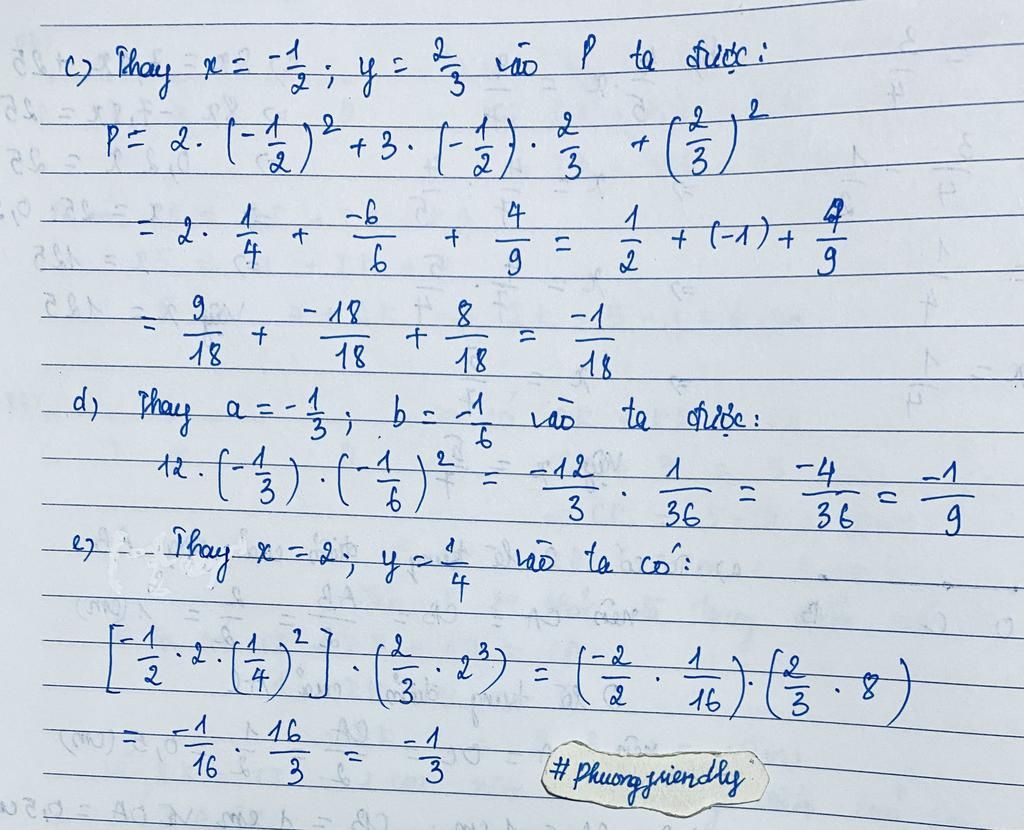 c) Thay x = -1/2 ; y = 2/3 vào P ta được:
P = 2 . (-1/2)² + 3 . (-1/2) . 2/3 + (2/3)²
= 2 . 1/4 + -6/6 + 4/9 = 1/2 + (-1) + 4/9
= 9/18 + -18/18 + 8/18 = -1/18
d) Thay a = -1/3 ; b = -1/6 vào ta được:
12 . (-1/3) . (-1/6)² = -12/3 . 1/36 = -4/36 = -1/9
e) Thay x = 2 ; y = 1/4 vào ta có:
[-1/2 . 2 . (1/4)²] . (2/3 . 2³) = (-2/2 . 1/16) . (2/3 . 8)
= -1/16 . 16/3 = -1/3
#Phuongfriendly